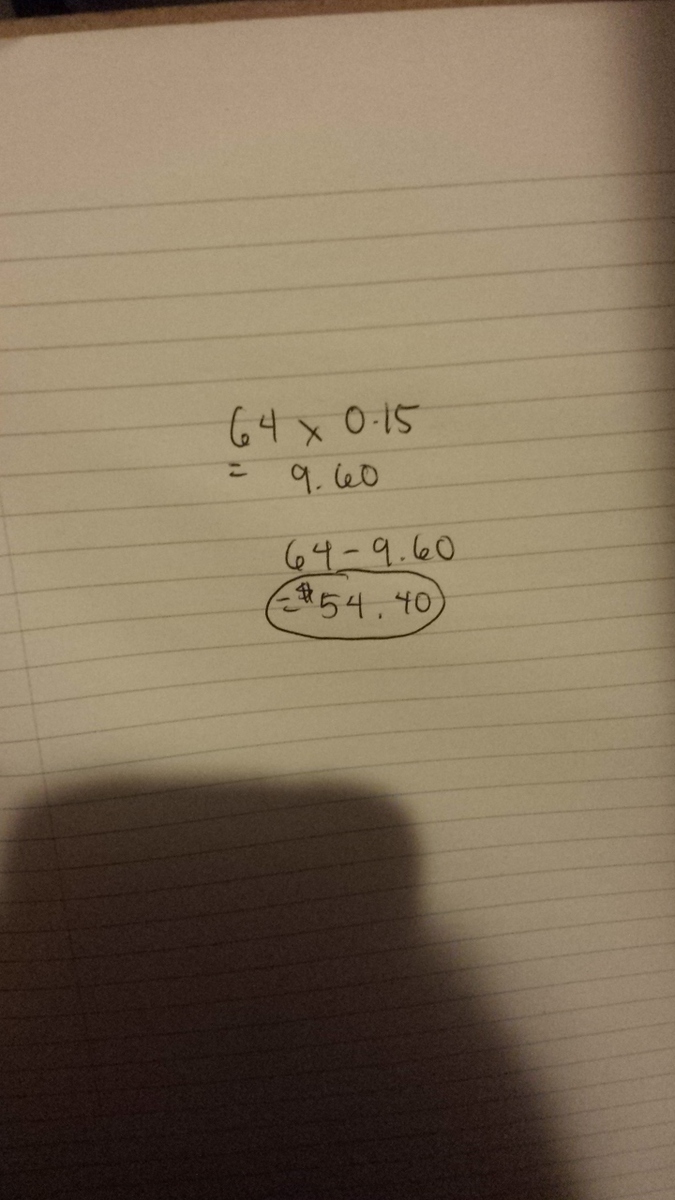 64 x 0.15
= 9.60
64 - 9.60
= $54.40